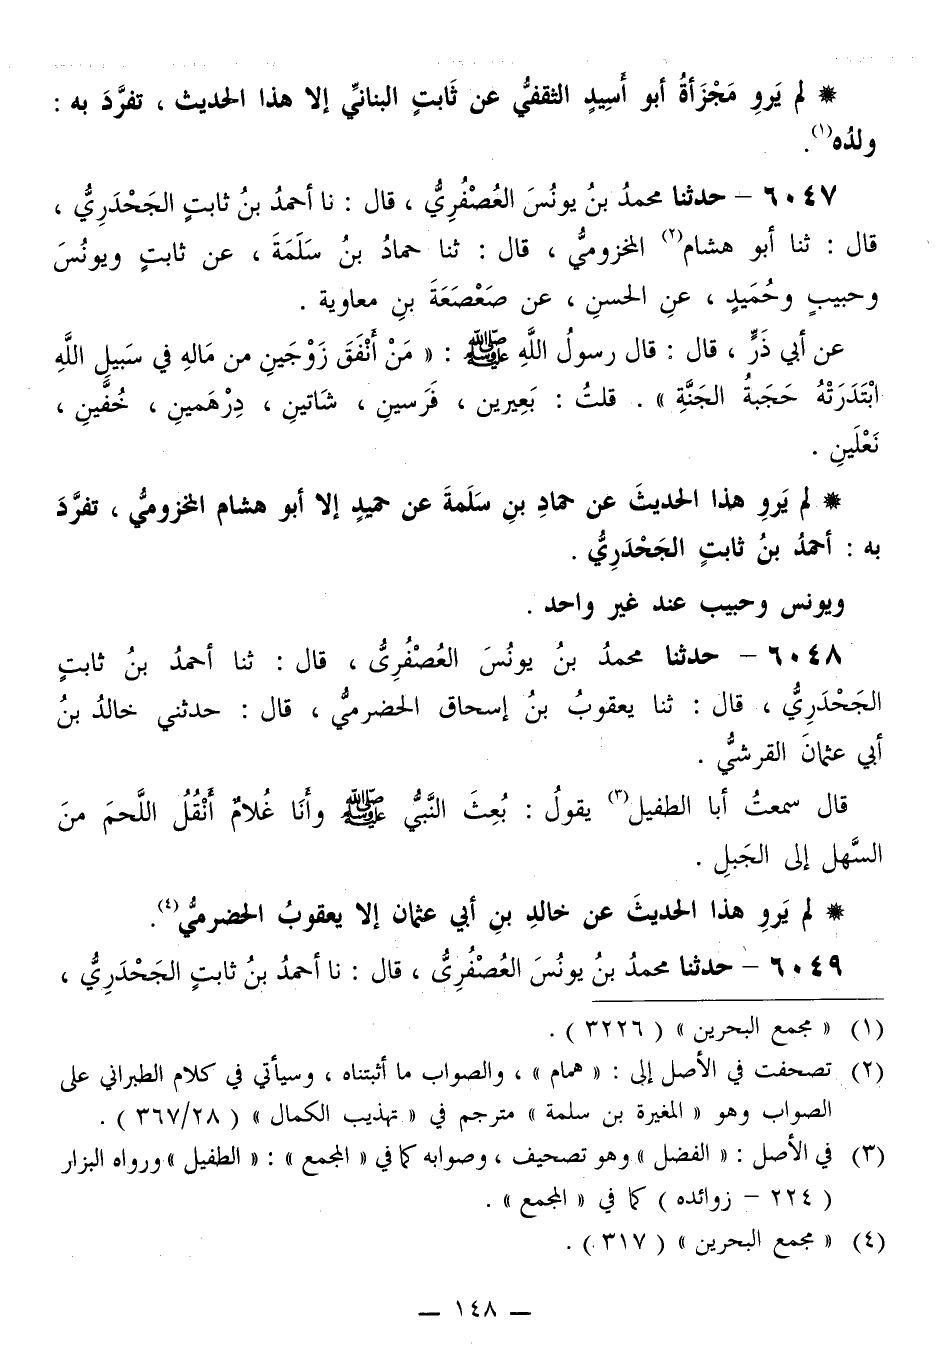 * لم يَروِ مَجْزَأةُ أبو أَسِيدٍ الثقفيُّ عن ثَابتٍ البنانيِّ إلا هذا الحديث ، تفرَّدَ به :
ولدُه(١).
٦٠٤٧ – حدثنا محمدُ بنُ يونُسَ العُصْفُرِيُّ ، قال : نا أحمدُ بنُ ثابتٍ الجَحْدَرِيُّ ،
قال : ثنا أبو هشام(٢) المخزوميُّ ، قال : ثنا حمادُ بنُ سَلَمَةَ ، عن ثابتٍ ويونُسَ
وحبيبٍ وحُمَيدٍ ، عنِ الحسنِ ، عن صَعْصَعَةَ بنِ معاوية .
عن أبي ذَرٍّ ، قال : قال رسولُ اللَّهِ ﷺ : « مَنْ أَنْفَقَ زَوْجَينِ من مَالهِ في سَبيلِ اللَّهِ
ابْتَدَرَتْهُ حَجَبةُ الجَنَّةِ » . قلتُ : بَعِيرين ، فَرَسينِ ، شَاتينِ ، دِرْهَمينِ ، خُفَّينِ ،
نَعْلَينِ .
* لم يَروِ هذا الحديثَ عن حمادِ بنِ سَلَمةَ عن حميدٍ إلا أبو هشام المخزوميُّ ، تفرَّدَ
به : أحمدُ بنُ ثابتٍ الجَحْدَرِيُّ .
ويونس وحبيب عند غير واحد .
٦٠٤٨ – حدثنا محمدُ بنُ يونُسَ العُصْفُرِىُّ ، قال : ثنا أحمدُ بنُ ثابتٍ
الجَحْدَرِيُّ ، قال : ثنا يعقوبُ بنُ إسحاق الحضرميُّ ، قال : حدثني خالدُ بنُ
أبي عثمانَ القرشيُّ .
قال سمعتُ أبا الطفيل(٣) يقولُ : بُعِثَ النَّبيُّ ﷺ وأَنَا غُلامٌ أَنْقُلُ اللَّحمَ منَ
السَّهل إلى الجَبلِ .
* لم يَروِ هذا الحديثَ عن خالدِ بنِ أبي عثمان إلا يعقوبُ الحضرميُّ(٤).
٦٠٤٩ – حدثنا محمدُ بنُ يونُسَ العُصْفُرِىُّ ، قال : نا أحمدُ بنُ ثابتٍ الجَحْدَرِيُّ ،
(١) « مجمع البحرين » ( ٣٢٢٦ ) .
(٢) تصحفت في الأصل إلى : « همام » ، والصواب ما أثبتناه ، وسيأتي في كلام الطبراني على
الصواب وهو « المغيرة بن سلمة » مترجم في « تهذيب الكمال » ( ٣٦٧/٢٨ ) .
(٣) في الأصل : « الفضل » وهو تصحيف ، وصوابه كما في « المجمع » : « الطفيل » ورواه البزار
( ٢٢٤ – زوائده ) كما في « المجمع » .
(٤) « مجمع البحرين » ( ٣١٧ ) .
— ١٤٨ —